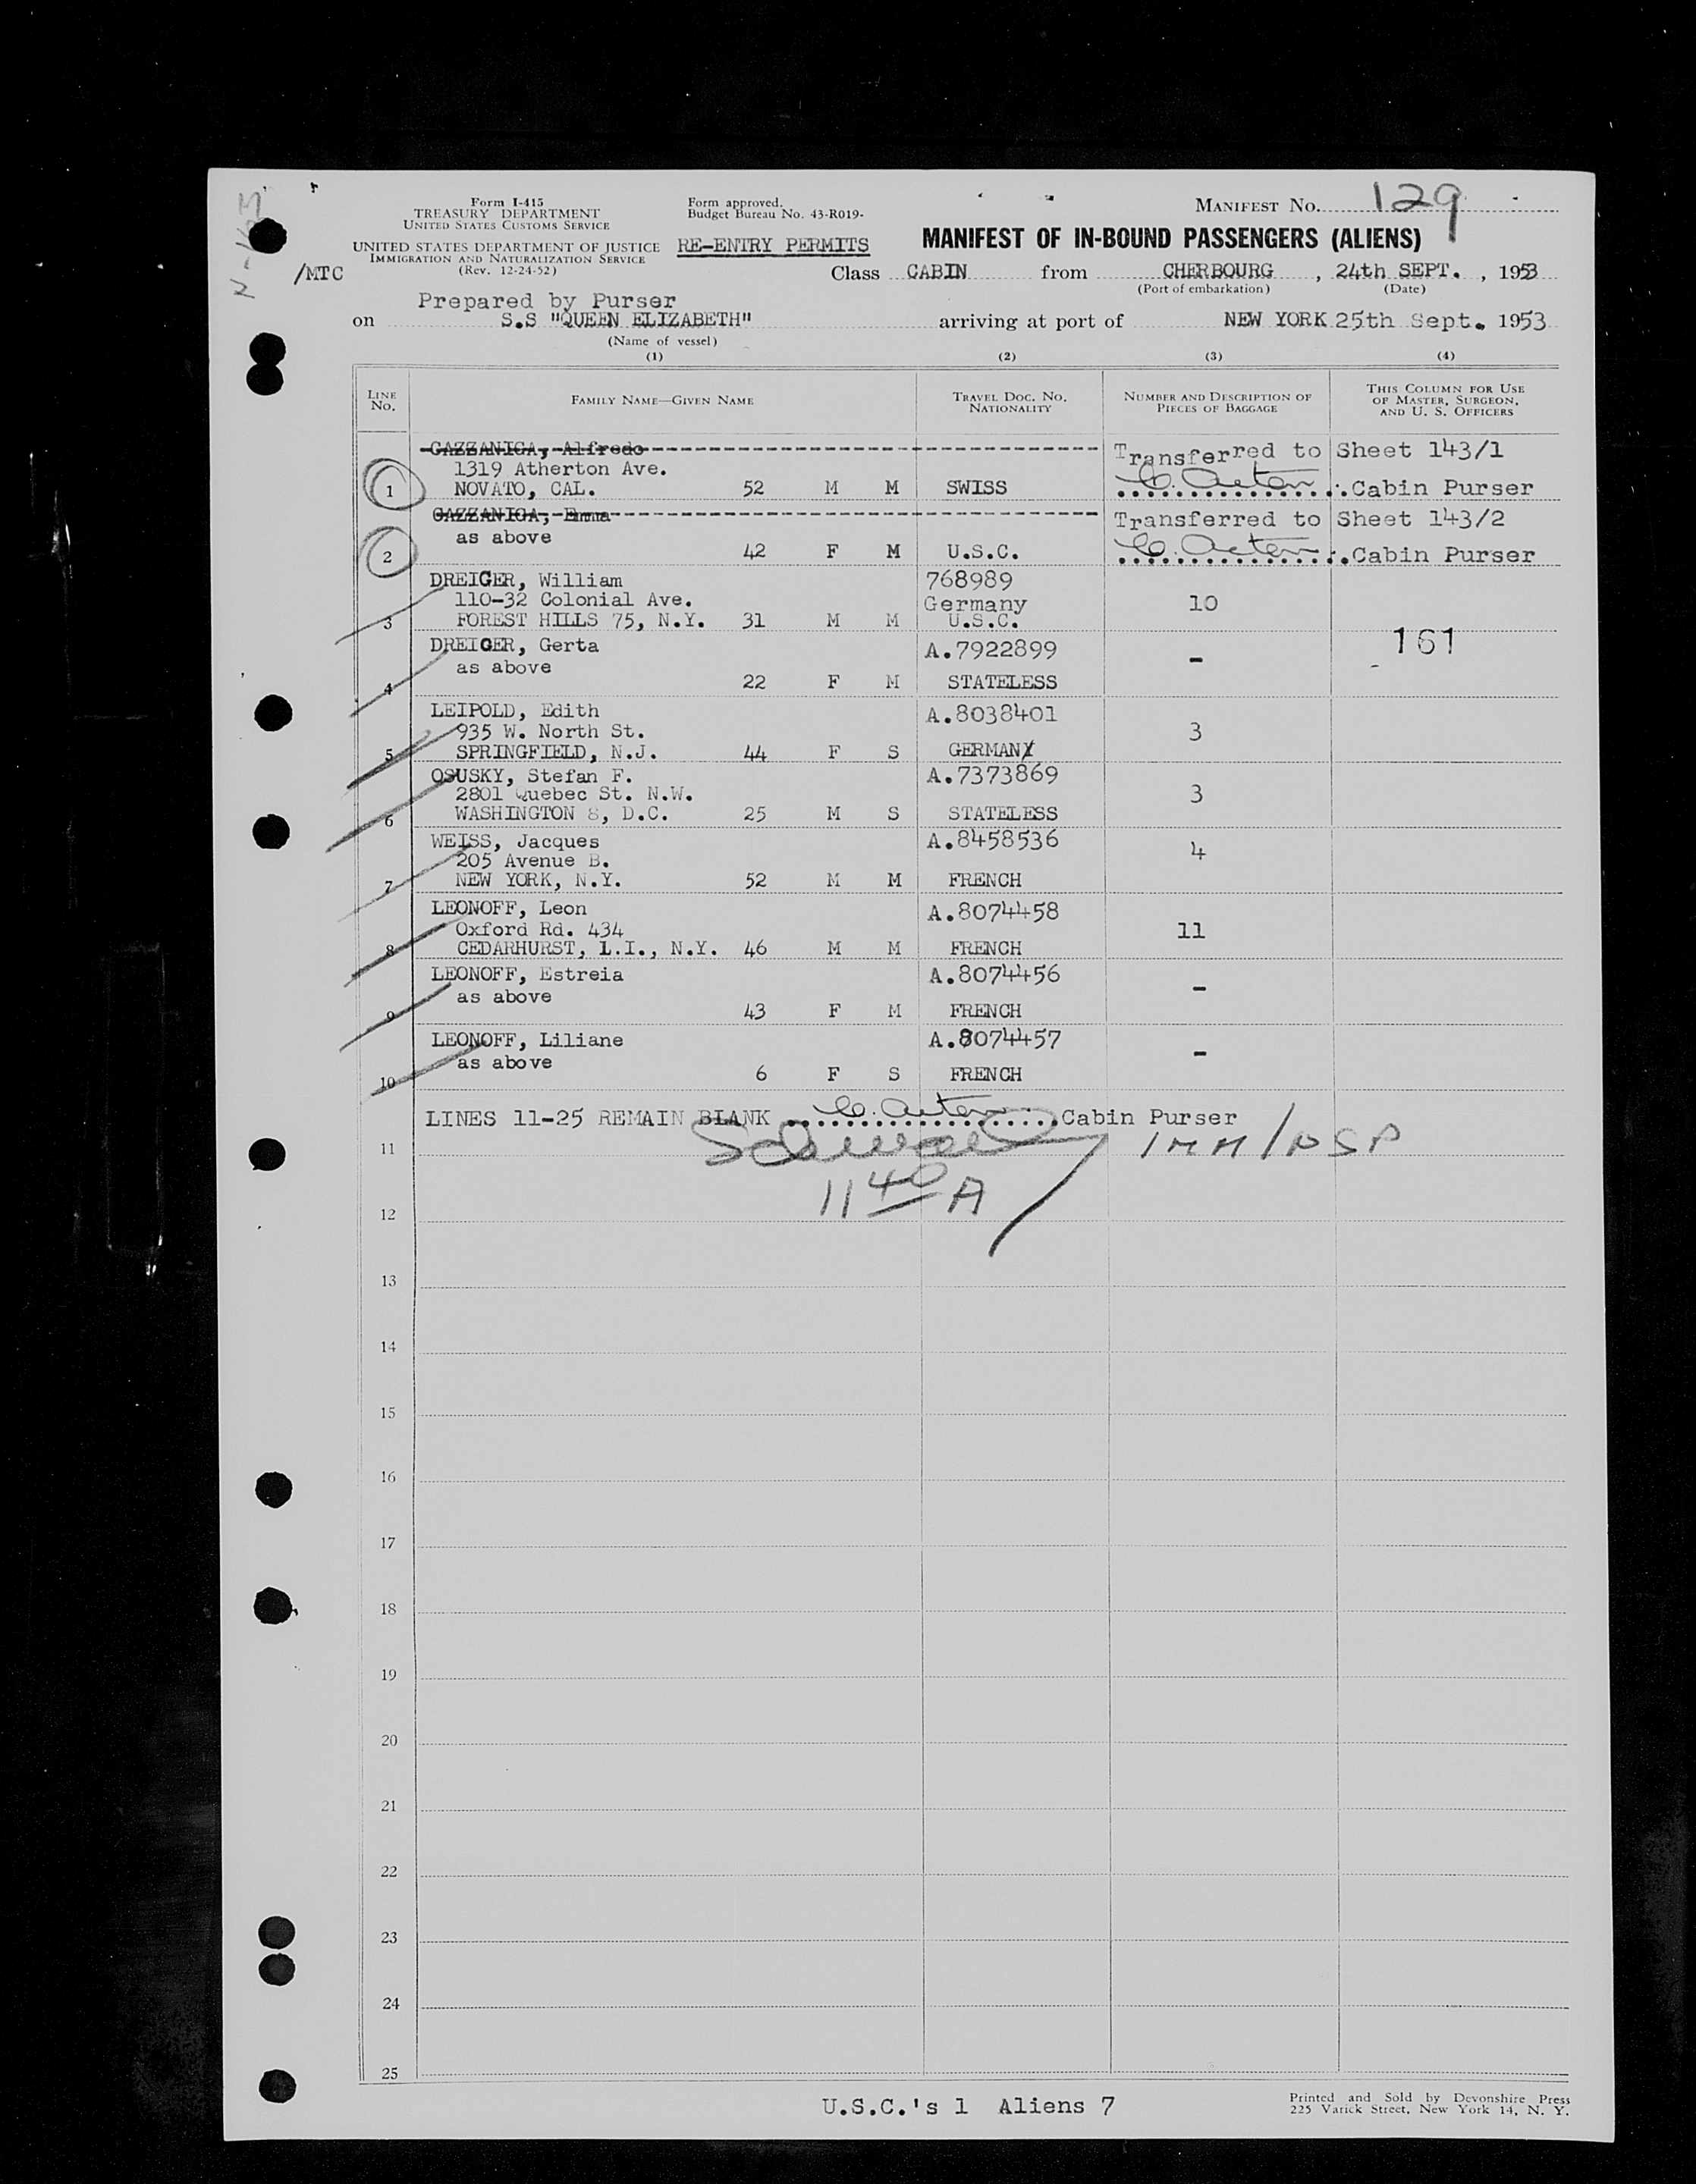 Form I-415
TREASURY DEPARTMENT
UNITED STATES CUSTOMS SERVICE
UNITED STATES DEPARTMENT OF JUSTICE
IMMIGRATION AND NATURALIZATION SERVICE
(Rev. 12-24-52)
/MTC
Form approved.
Budget Bureau No. 43-R019-
RE-ENTRY PERMITS
MANIFEST NO. 129
MANIFEST OF IN-BOUND PASSENGERS (ALIENS)
Class CABIN from CHERBOURG, 24th SEPT., 1953
(Port of embarkation) (Date)
Prepared by Purser
on S.S "QUEEN ELIZABETH" arriving at port of NEW YORK 25th Sept. 1953
(Name of vessel)
(1) (2) (3) (4)
LINE NO. FAMILY NAME—GIVEN NAME TRAVEL DOC. NO. NATIONALITY NUMBER AND DESCRIPTION OF PIECES OF BAGGAGE THIS COLUMN FOR USE OF MASTER, SURGEON, AND U. S. OFFICERS
GAZZANIGA, Alfredo Transferred to Sheet 143/1
1319 Atherton Ave.
1 NOVATO, CAL. 52 M M SWISS Cabin Purser
GAZZANIGA, Emma Transferred to Sheet 143/2
as above
2 42 F M U.S.C. Cabin Purser
DREIGER, William 768989
110-32 Colonial Ave. Germany 10
3 FOREST HILLS 75, N.Y. 31 M M U.S.C.
DREIGER, Gerta A.7922899 161
as above -
4 22 F M STATELESS
LEIPOLD, Edith A.8038401
935 W. North St. 3
5 SPRINGFIELD, N.J. 44 F S GERMANY
OSUSKY, Stefan F. A.7373869
2801 Quebec St. N.W. 3
6 WASHINGTON 8, D.C. 25 M S STATELESS
WEISS, Jacques A.8458536
205 Avenue B. 4
7 NEW YORK, N.Y. 52 M M FRENCH
LEONOFF, Leon A.8074458
Oxford Rd. 434 11
8 CEDARHURST, L.I., N.Y. 46 M M FRENCH
LEONOFF, Estreia A.8074456
as above -
9 43 F M FRENCH
LEONOFF, Liliane A.8074457
as above -
10 6 F S FRENCH
LINES 11-25 REMAIN BLANK Cabin Purser
11
11 40 A
12
13
14
15
16
17
18
19
20
21
22
23
24
25
U.S.C.'s 1 Aliens 7
Printed and Sold by Devonshire Press
225 Varick Street, New York 14, N. Y.